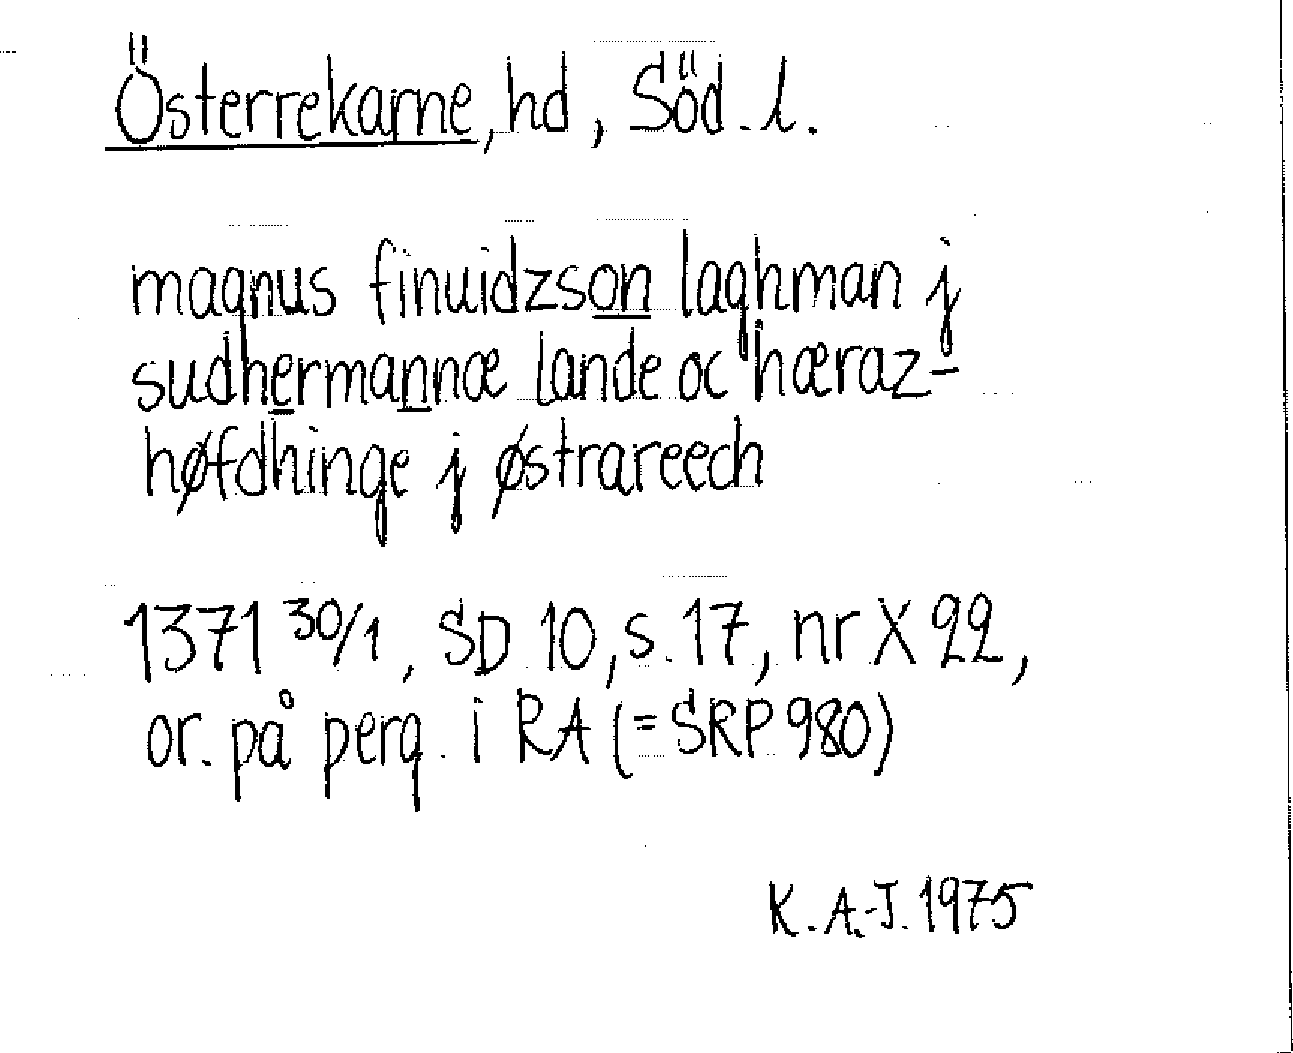 Österrekarne, hd, Söd. l.
magnus finuidzson laghman j
sudhermannæ lande oc hæraz-
høfdhinge j østrareech
1371 30/1, SD 10, s. 17, nr X 22,
or. på perg. i RA (= SRP 980)
K. A.-J. 1975